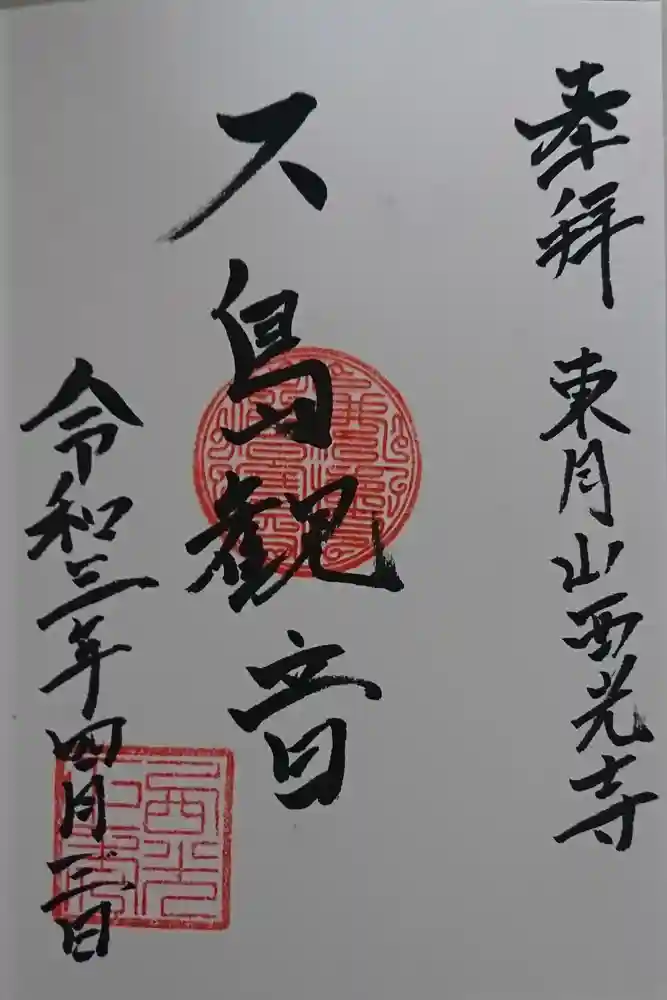 奉拝 東月山西光寺
島観音
令和三年四月三日
西光